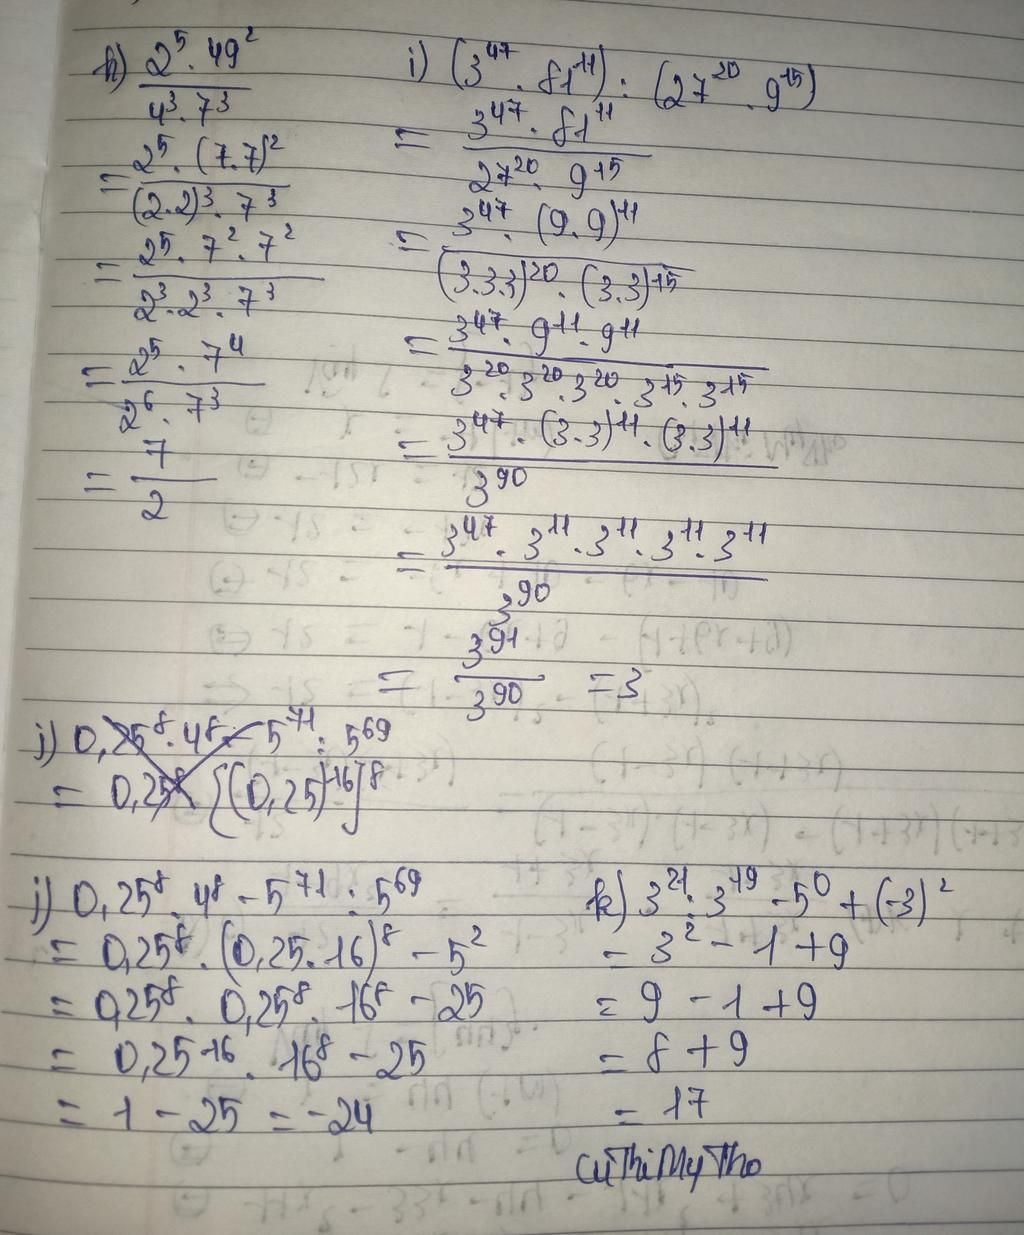 h) 2⁵ . 49² / 4³ . 7³
= 2⁵ . (7.7)² / (2.2)³ . 7³
= 2⁵ . 7² . 7² / 2³ . 2³ . 7³
= 2⁵ . 7⁴ / 2⁶ . 7³
= 7 / 2
i) (3⁴⁷ . 81¹¹) : (27²⁰ . 9¹⁵)
= 3⁴⁷ . 81¹¹ / 27²⁰ . 9¹⁵
= 3⁴⁷ . (9.9)¹¹ / (3.3.3)²⁰ . (3.3)¹⁵
= 3⁴⁷ . 9¹¹ . 9¹¹ / 3²⁰ . 3²⁰ . 3²⁰ . 3¹⁵ . 3¹⁵
= 3⁴⁷ . (3.3)¹¹ . (3.3)¹¹ / 3⁹⁰
= 3⁴⁷ . 3¹¹ . 3¹¹ . 3¹¹ . 3¹¹ / 3⁹⁰
= 3⁹¹ / 3⁹⁰ = 3
j) 0,25⁸ . 4⁸ - 5⁷¹ : 5⁶⁹
= 0,25⁸ [(0,25)¹⁶]⁸
j) 0,25⁸ . 4⁸ - 5⁷¹ : 5⁶⁹
= 0,25⁸ . (0,25.16)⁸ - 5²
= 0,25⁸ . 0,25⁸ . 16⁸ - 25
= 0,25¹⁶ . 16⁸ - 25
= 1 - 25 = -24
k) 3²¹ : 3¹⁹ - 5⁰ + (-3)²
= 3² - 1 + 9
= 9 - 1 + 9
= 8 + 9
= 17
CuThiMyTho